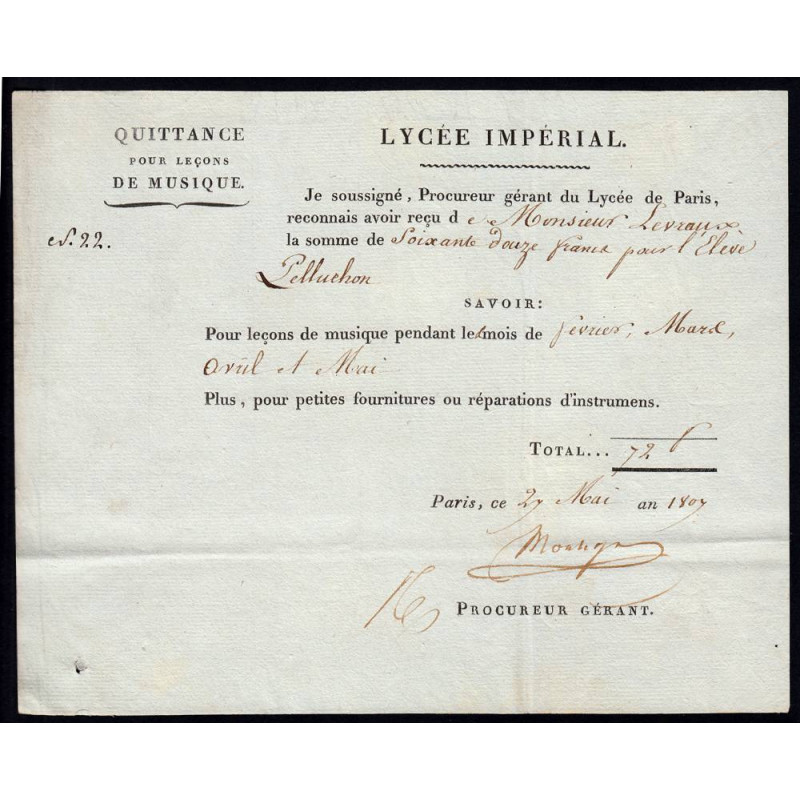 QUITTANCE
POUR LEÇONS
DE MUSIQUE.
N.º 22.
LYCÉE IMPÉRIAL.
Je soussigné, Procureur gérant du Lycée de Paris,
reconnais avoir reçu de Monsieur Levraux
la somme de Soixante douze francs pour l'Elève
Pelluchon
SAVOIR:
Pour leçons de musique pendant les mois de février, Mars,
avril et Mai
Plus, pour petites fournitures ou réparations d'instrumens.
TOTAL... 72 f
Paris, ce 27 Mai an 1807
PROCUREUR GÉRANT.